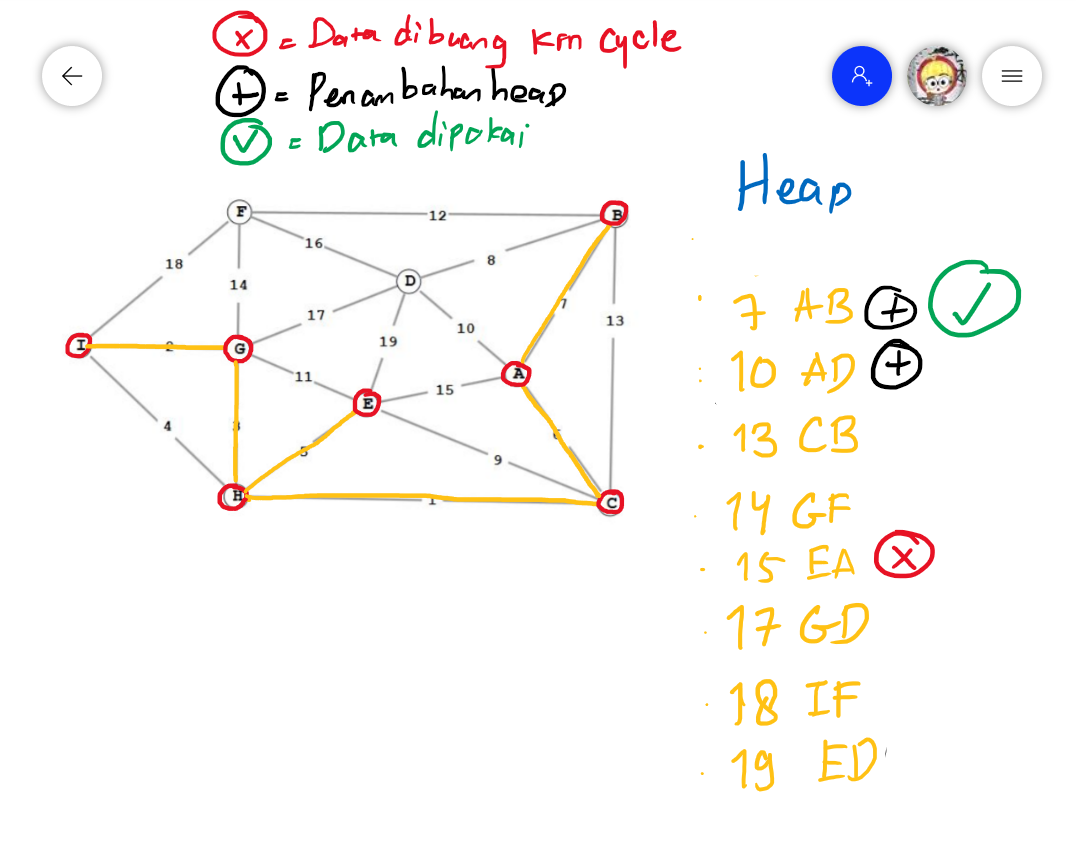 X = Data dibuang krn cycle
+ = Penambahan heap
✓ = Data dipakai
Heap
F 12 B
16
8
18
D
14
7
17
13
10
19
I 2 G
11
A
15
E
6
4
3
5
9
H 1 C
7 AB + ✓
10 AD +
13 CB
14 GF
15 EA X
17 GD
18 IF
19 ED